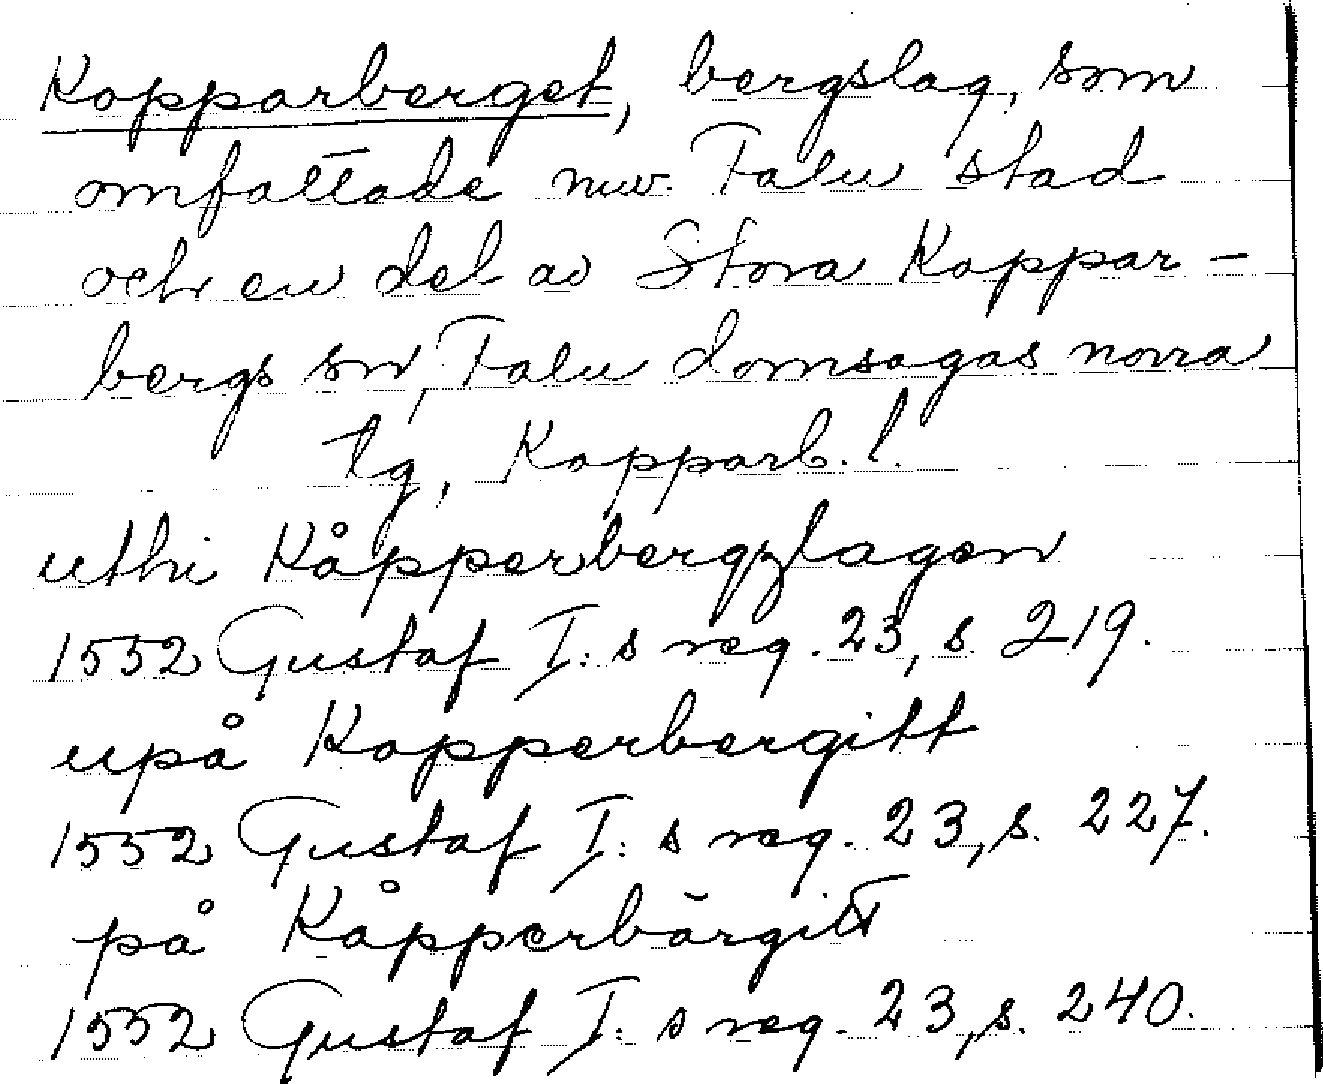 Kopparberget, bergslag, som
omfattade nuv. Falu stad
och en del av Stora Koppar-
bergs sn, Falu domsagas norra
tg, Kopparb. l.
uthi Kåpperbergzlagen
1552 Gustaf I:s reg. 23, s. 219.
upå Kopperbergitt
1552 Gustaf I:s reg. 23, s. 227.
på Kåpperbärgitt
1552 Gustaf I:s reg. 23, s. 240.